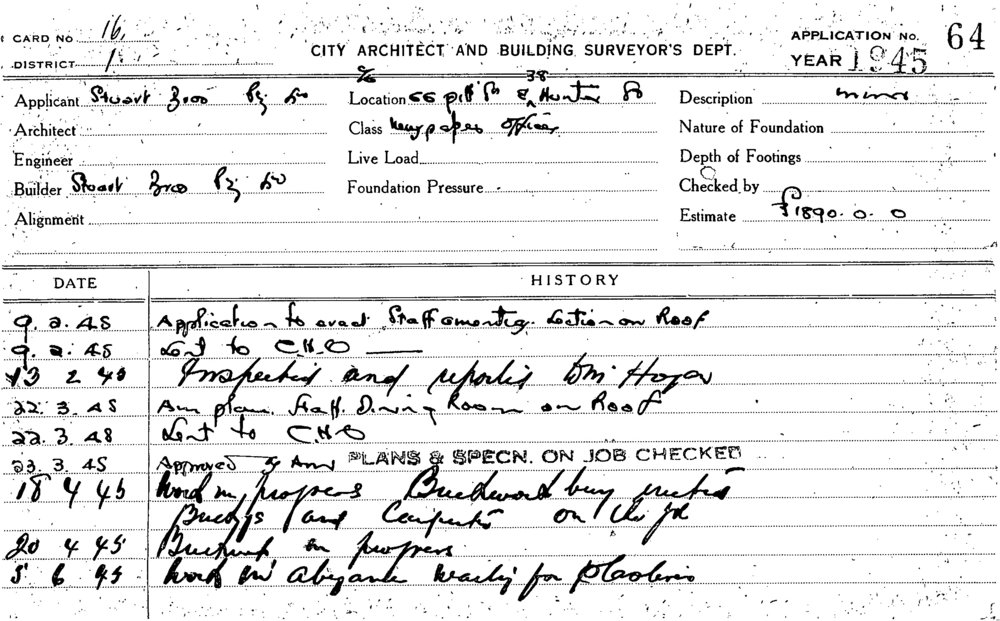 CARD NO 16
DISTRICT 1
CITY ARCHITECT AND BUILDING SURVEYOR'S DEPT.
APPLICATION No. 64
YEAR 1945
Applicant Stuart Bros Pty Ltd
Location 66 Pitt St & 38 Hunter St
Description minor
Architect
Class Newspaper Offices
Nature of Foundation
Engineer
Live Load
Depth of Footings
Builder Stuart Bros Pty Ltd
Foundation Pressure
Checked by
Alignment
Estimate £1890.0.0
DATE HISTORY
9.2.45 Application to erect Staff Section on Roof
9.2.45 Sent to C.H.O
13 2 45 Inspected and reported to Mr Hogan
22.3.45 Am plan. Staff Dining Room on Roof
22.3.45 Sent to C.H.O
23.3.45 Approved PLANS & SPECN. ON JOB CHECKED
18 4 45 Work in progress Brickwork being erected
and Carpenters on the job
20 4 45 Brickwork in progress
5 6 45 Work in abeyance waiting for plasterers